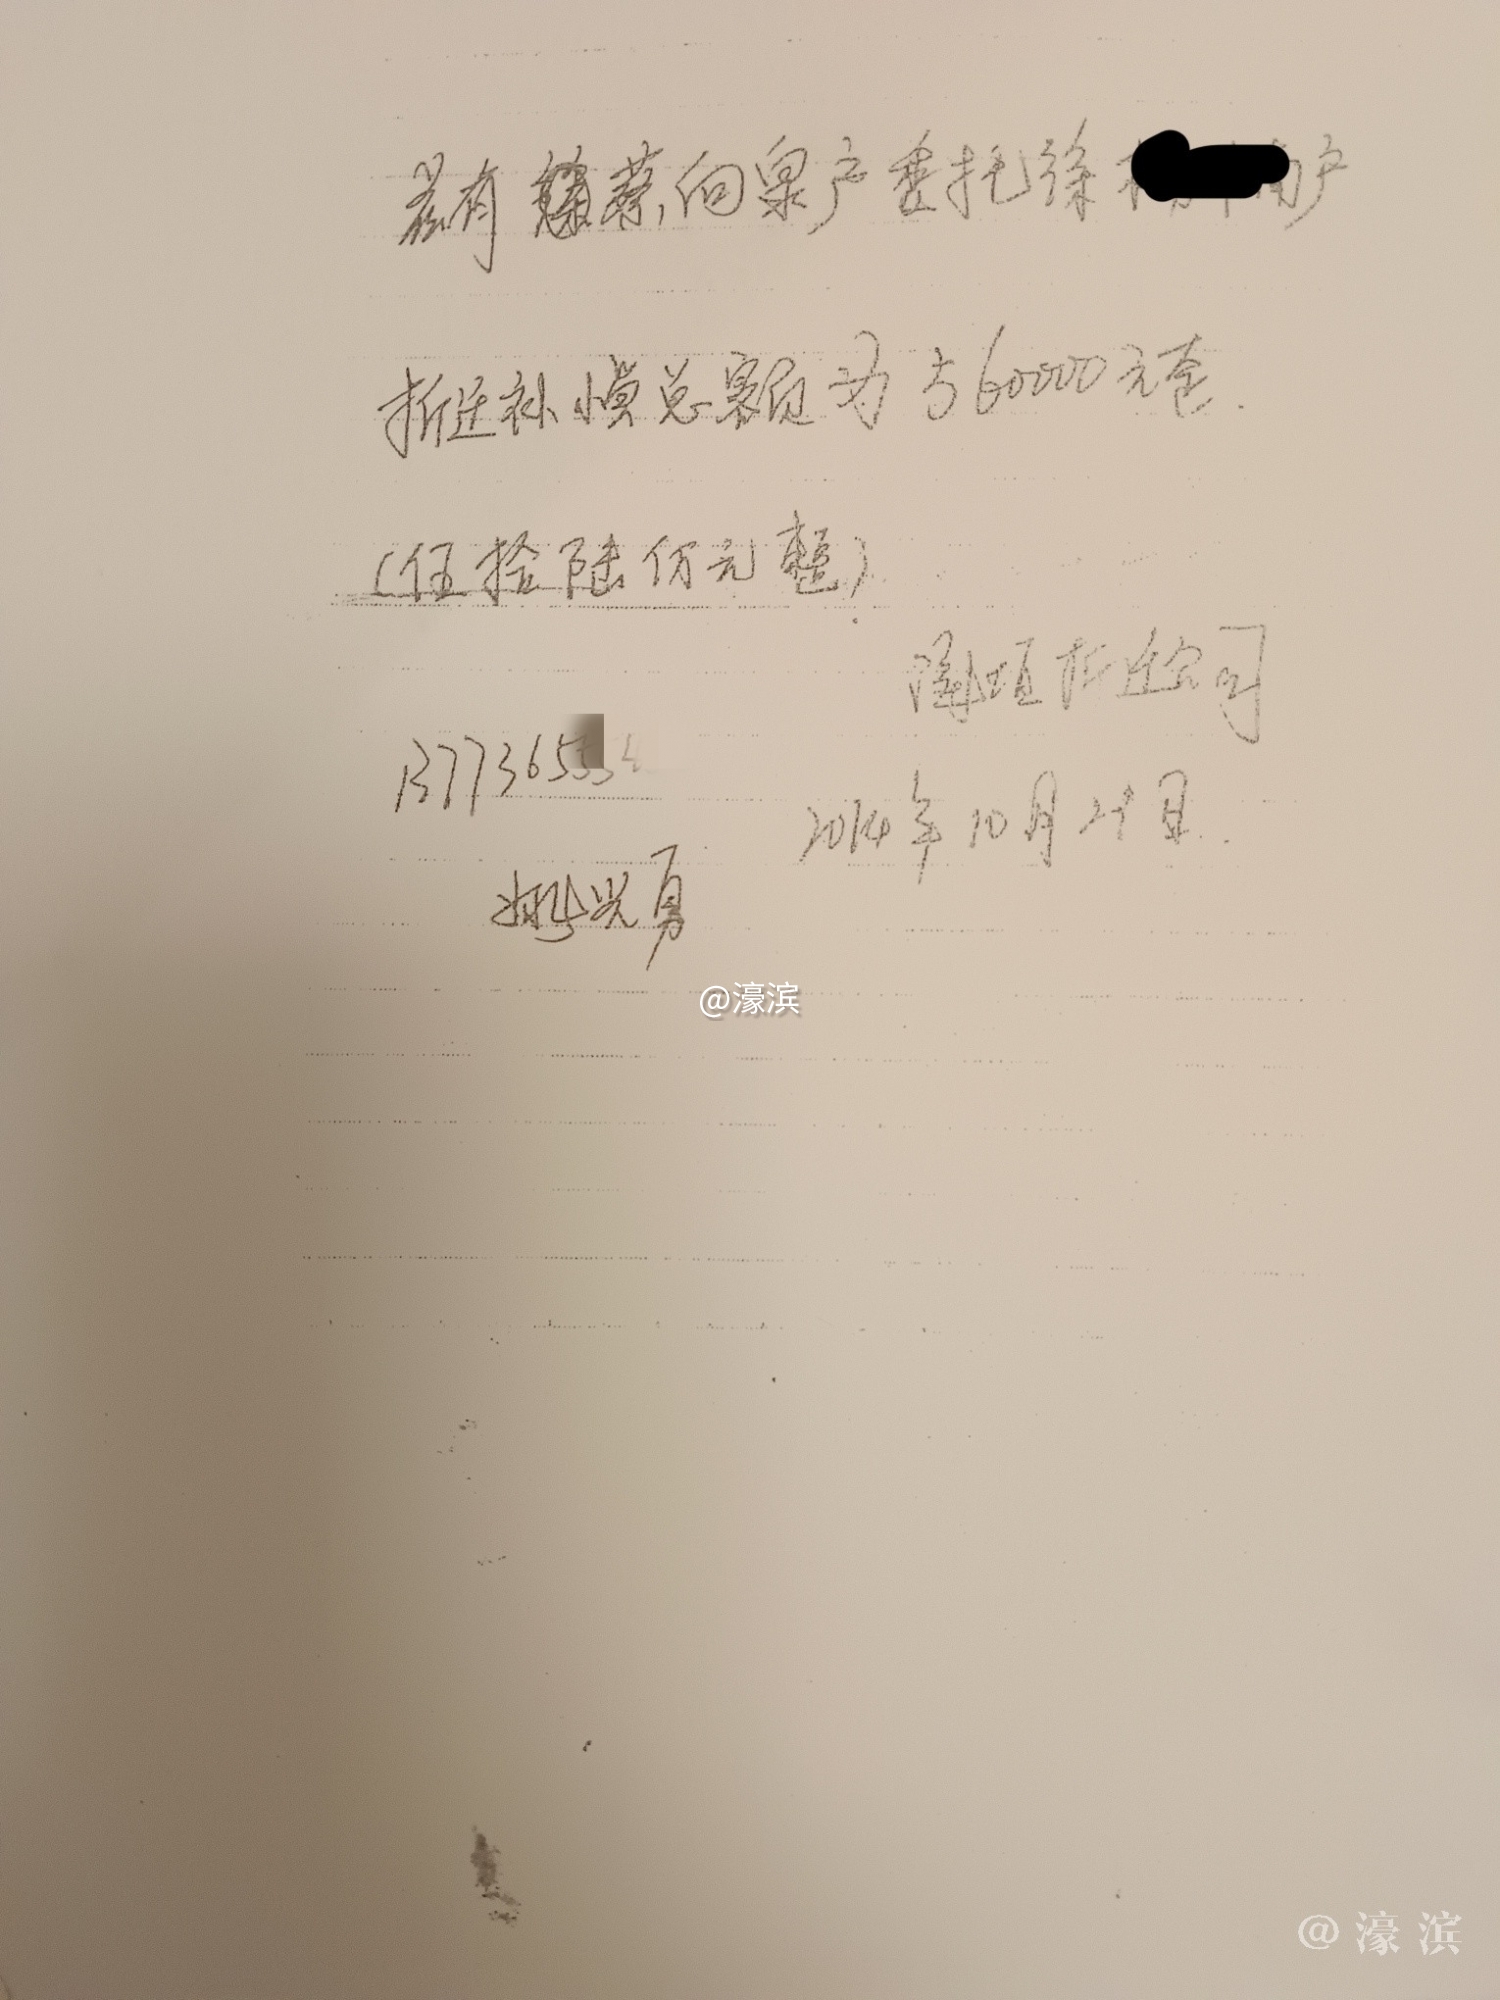 兹有 蔡向泉户委托徐
拆迁补偿总额为560000元壹.
(伍拾陆仿元整)
拆迁公司
1377365
2014年10月29日.
姚兴勇
@濠滨
@濠滨